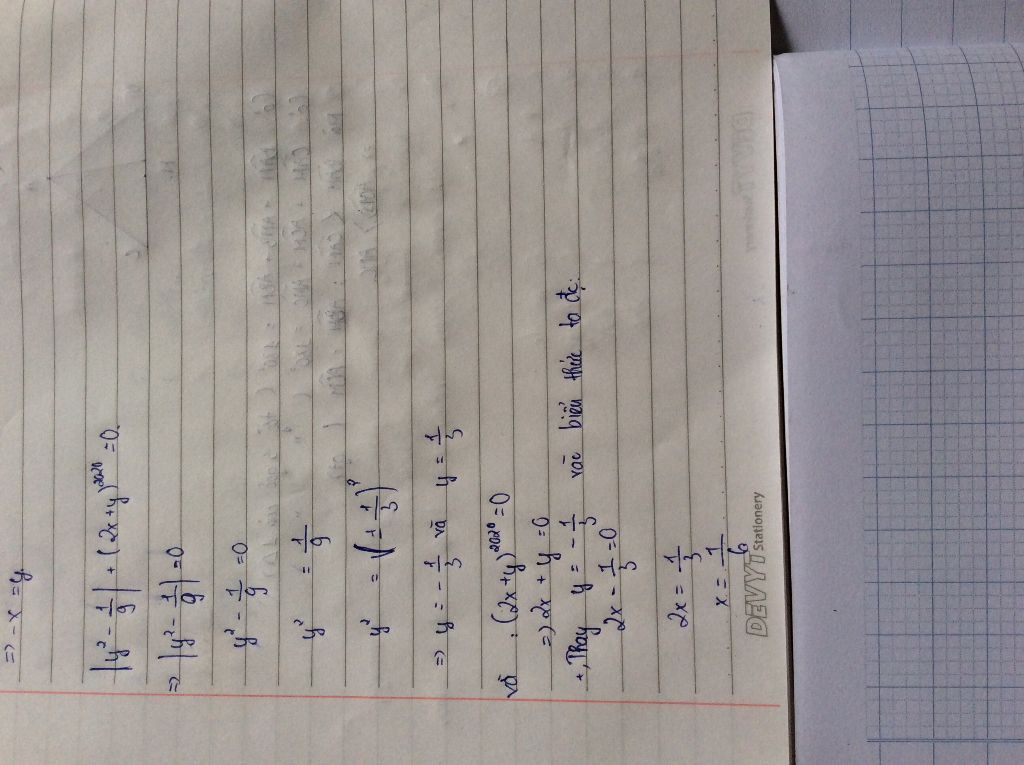 => - x = y
|y² - 1/9| + (2x+y)²⁰²⁰ = 0.
=> |y² - 1/9| = 0
y² - 1/9 = 0
y² = 1/9
y² = (± 1/3)²
=> y = - 1/3 và y = 1/3
và : (2x+y)²⁰²⁰ = 0
=> 2x + y = 0
+, Thay y = - 1/3 vào biểu thức ta đc:
2x - 1/3 = 0
2x = 1/3
x = 1/6
DEVYT Stationery